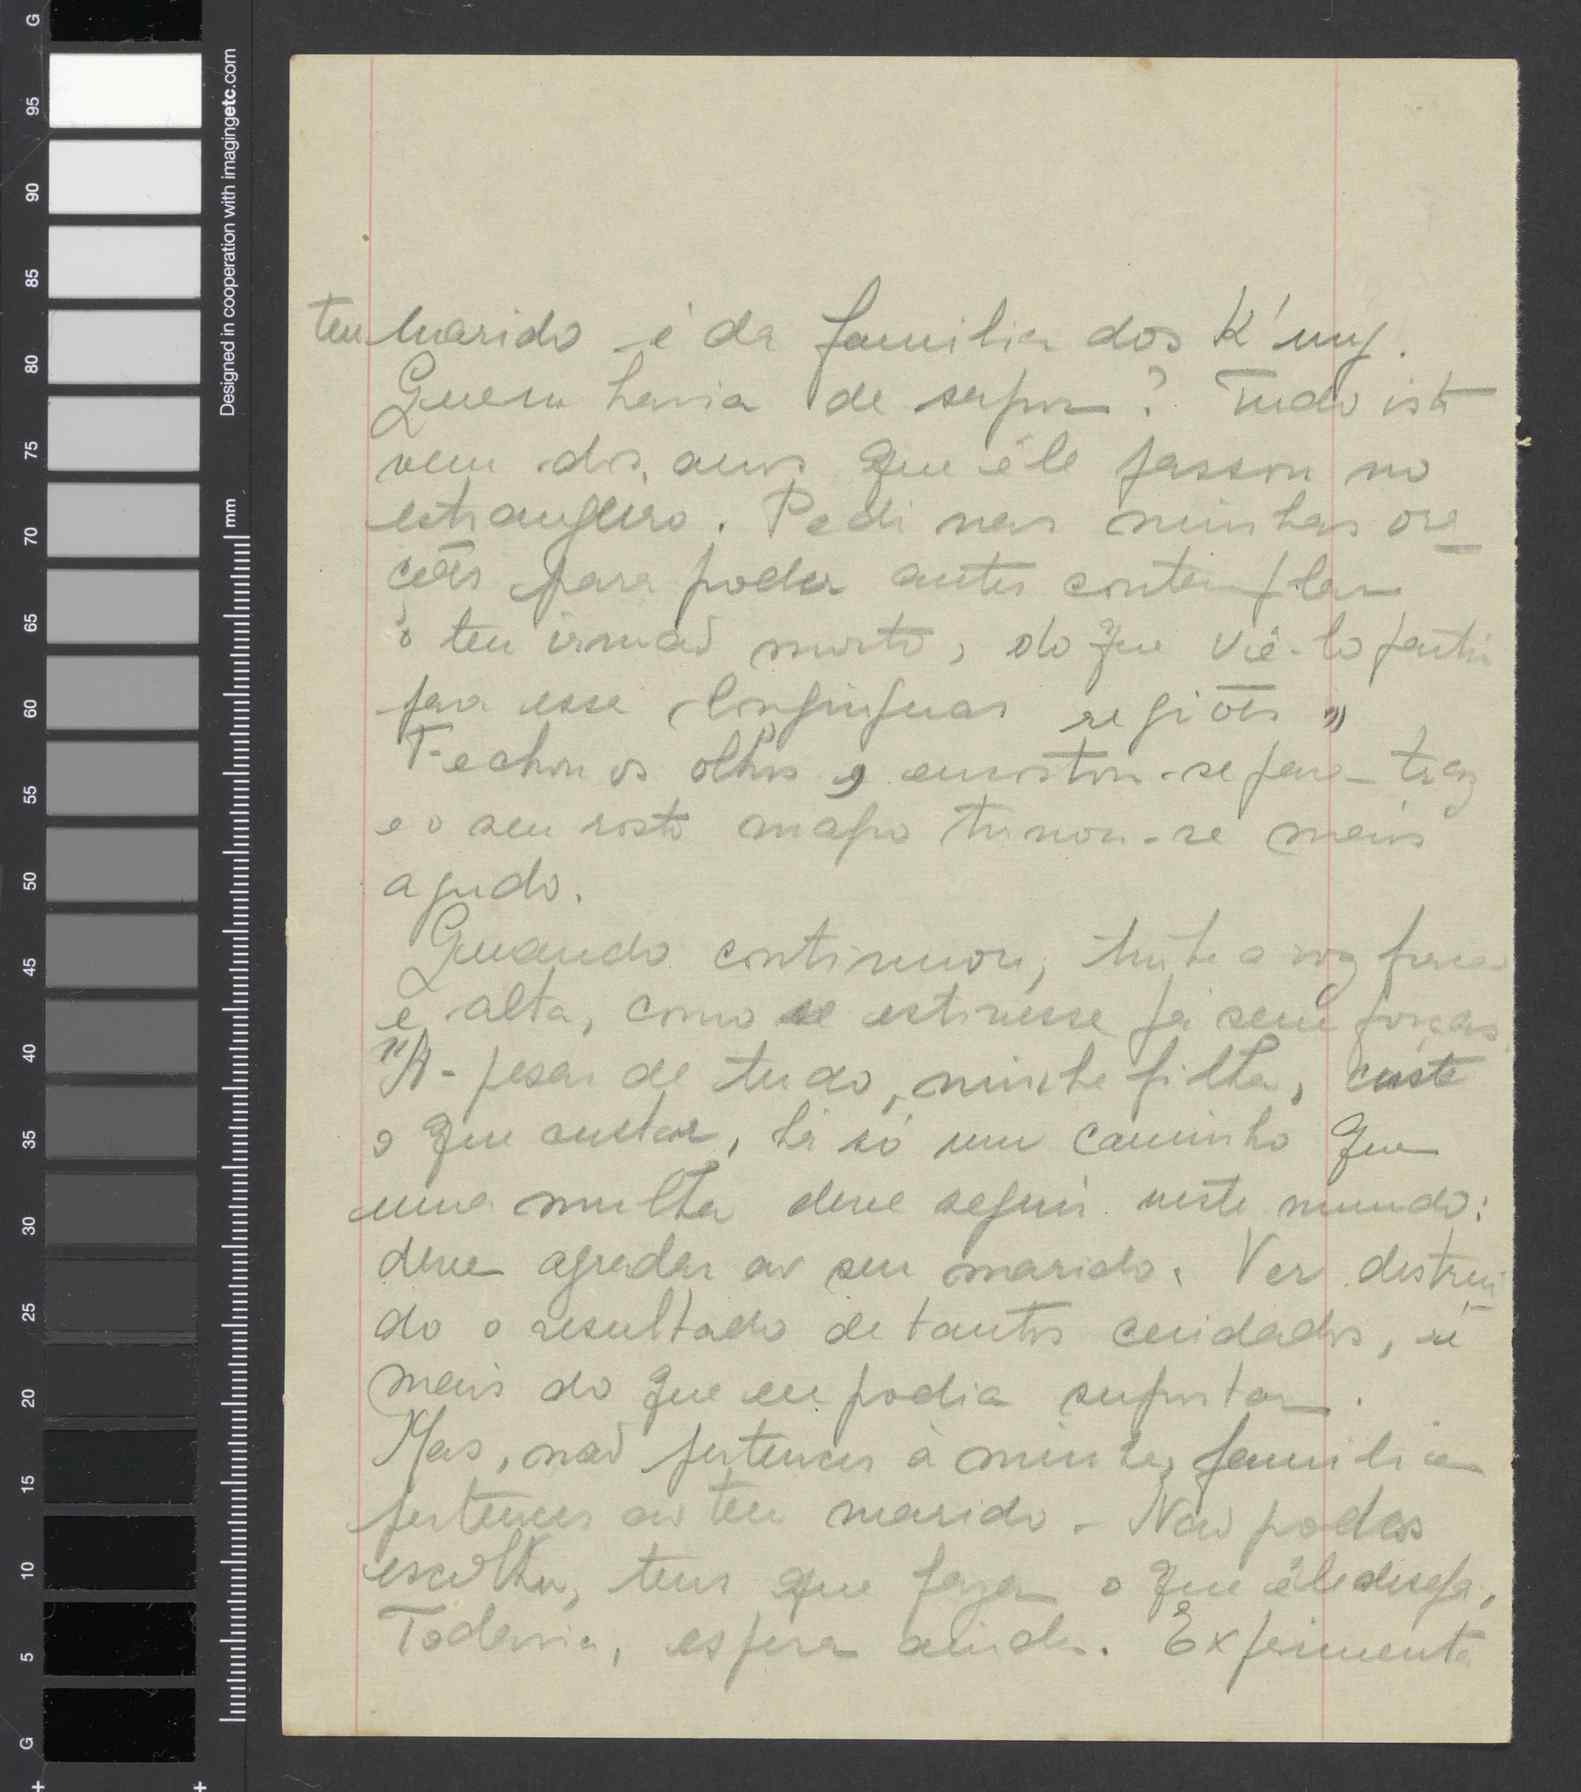 G
95
90
85
80
75
70
65
60
55
50
45
40
35
30
25
20
15
10
5
G
Designed in cooperation with imagingetc.com
mm
teu marido é da familia dos K'ung.
Quem havia de supor? Tudo isto
vem dos anos que êle passou no
estrangeiro. Pedi nas minhas ora
ções para poder antes contemplar
o teu irmão morto, do que vê-lo partir
para esse longinquas regiões"
Fechou os olhos, encostou-se para traz
e o seu rosto magro tornou-se mais
agudo.
Quando continuou, tinha a voz fraca
e alta, como se estivesse já sem forças.
"A-pesar de tudo, minha filha, custe
o que custar, há só um caminho que
uma mulher deve seguir neste mundo:
deve agradar ao seu marido. Ver destrui
do o resultado de tantos cuidados, é
mais do que eu podia suportar.
Mas, não pertences à minha familia
pertences ao teu marido. Não podes
escolher, tens que fazer o que êle deseja,
Todavia, espera ainda. Experimenta